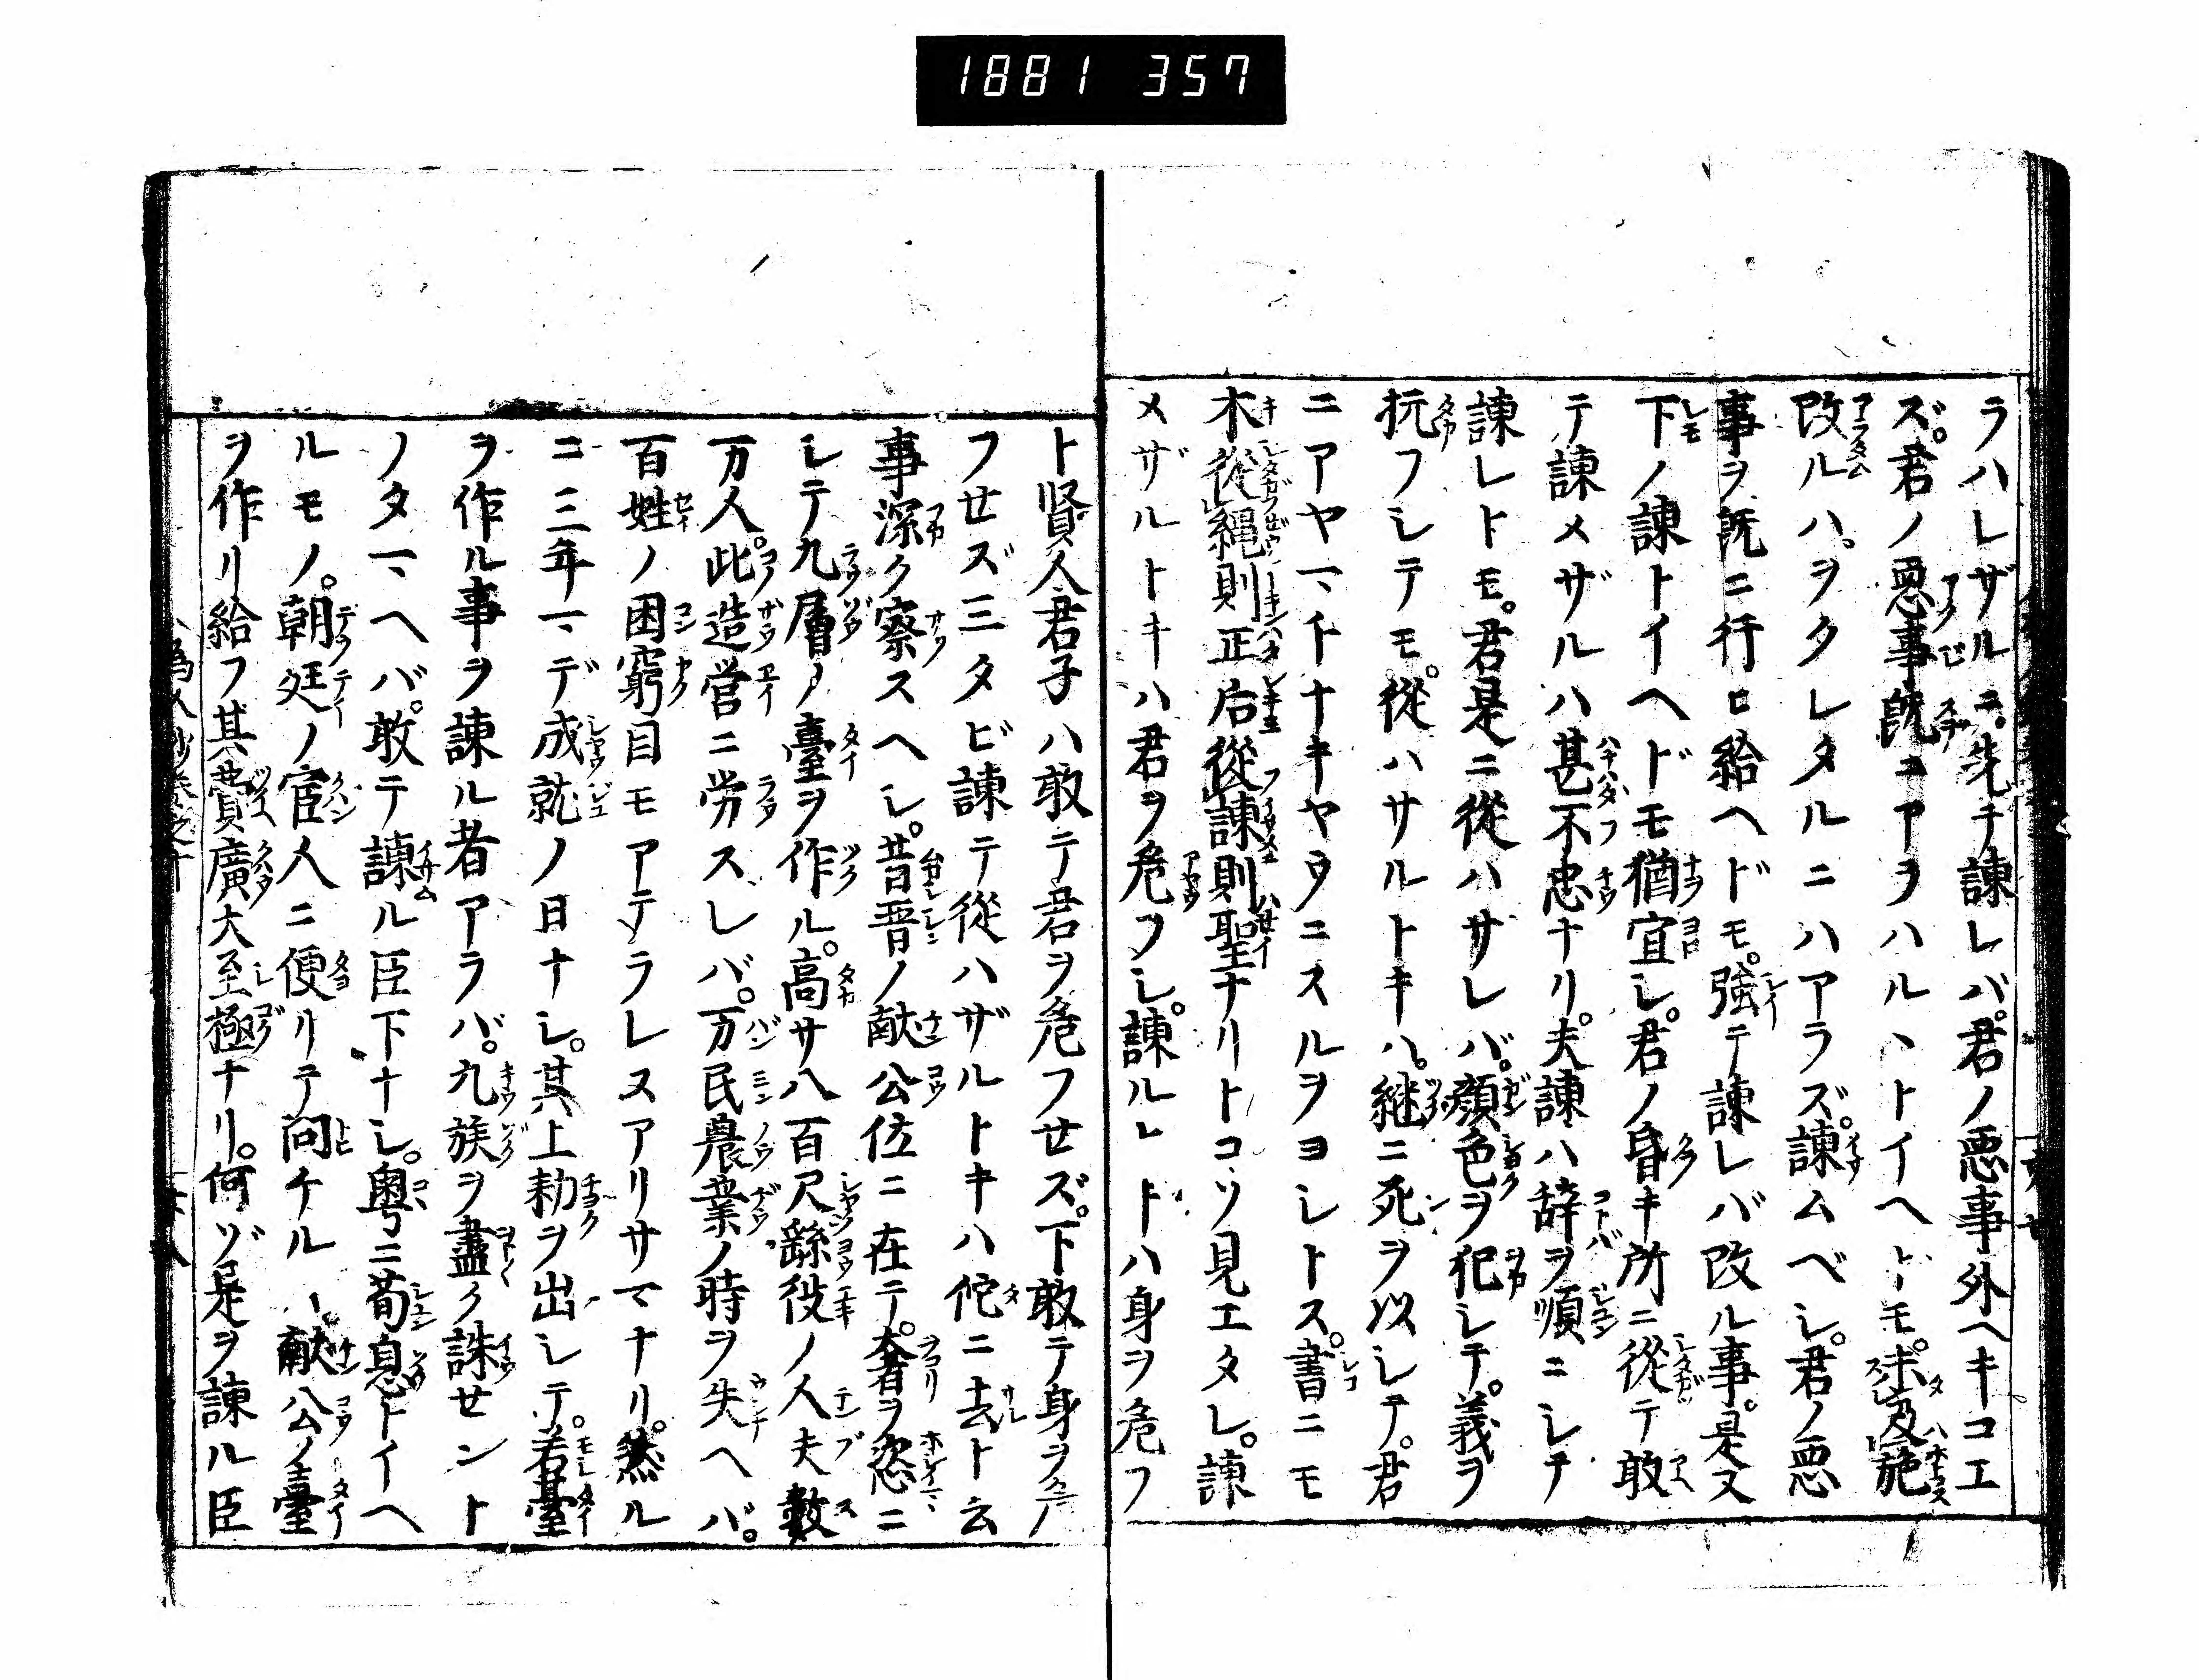 1881 357
ラハレザルニ先チ諫レバ。君ノ悪事外ヘキコエ
ズ。君ノ悪事既ニアラハルヽトイヘトモ。未及施
改ルハ。ヲクレタルニハアラズ。諫ムベシ。君ノ悪
事ヲ既ニ行ヒ給ヘドモ。強テ諫レバ改ル事。是又
下ノ諫トイヘドモ猶宜シ。君ノ昏キ所ニ從テ敢
テ諫メザルハ甚不忠ナリ。夫諫ハ辞ヲ順ニシテ
諫レトモ。君是ニ從ハサレバ。顔色ヲ犯シテ。義ヲ
抗フシテモ。從ハサルトキハ。継ニ死ヲ以シテ。君
ニアヤマイナキヤウニスルヲヨシトス。書ニモ
木從縄則正后從諫則聖ナリトコソ見エタレ。諫
メザルトキハ君ヲ危フシ。諫ルレトハ身ヲ危フ
ト賢人君子ハ敢テ君ヲ危フせズ。下敢テ身ヲ危
フせズ三タビ諫テ從ハザルトキハ佗ニ去ト云
事深ク察スヘシ。昔晋ノ献公位ニ在テ。奢ヲ恣ニ
シテ九層ノ臺ヲ作ル。高サ八百尺繇役ノ人夫数
万人。此造営ニ労スレバ。万民農業ノ時ヲ失ヘバ。
百姓ノ困窮目モアテラレヌアリサマナリ。然ル
ニ三年マデ成就ノ日ナシ。其上勅ヲ出シテ。若臺
ヲ作ル事ヲ諫ル者アラバ。九族ヲ盡ク誅せント
ノタマヘバ。敢テ諫ル臣下ナシ。粤ニ荀息トイヘ
ルモノ。朝廷ノ宦人ニ便リテ問チルハ献公ノ臺
ヲ作リ給フ其費廣大至極ナリ。何ゾ是ヲ諫ル臣